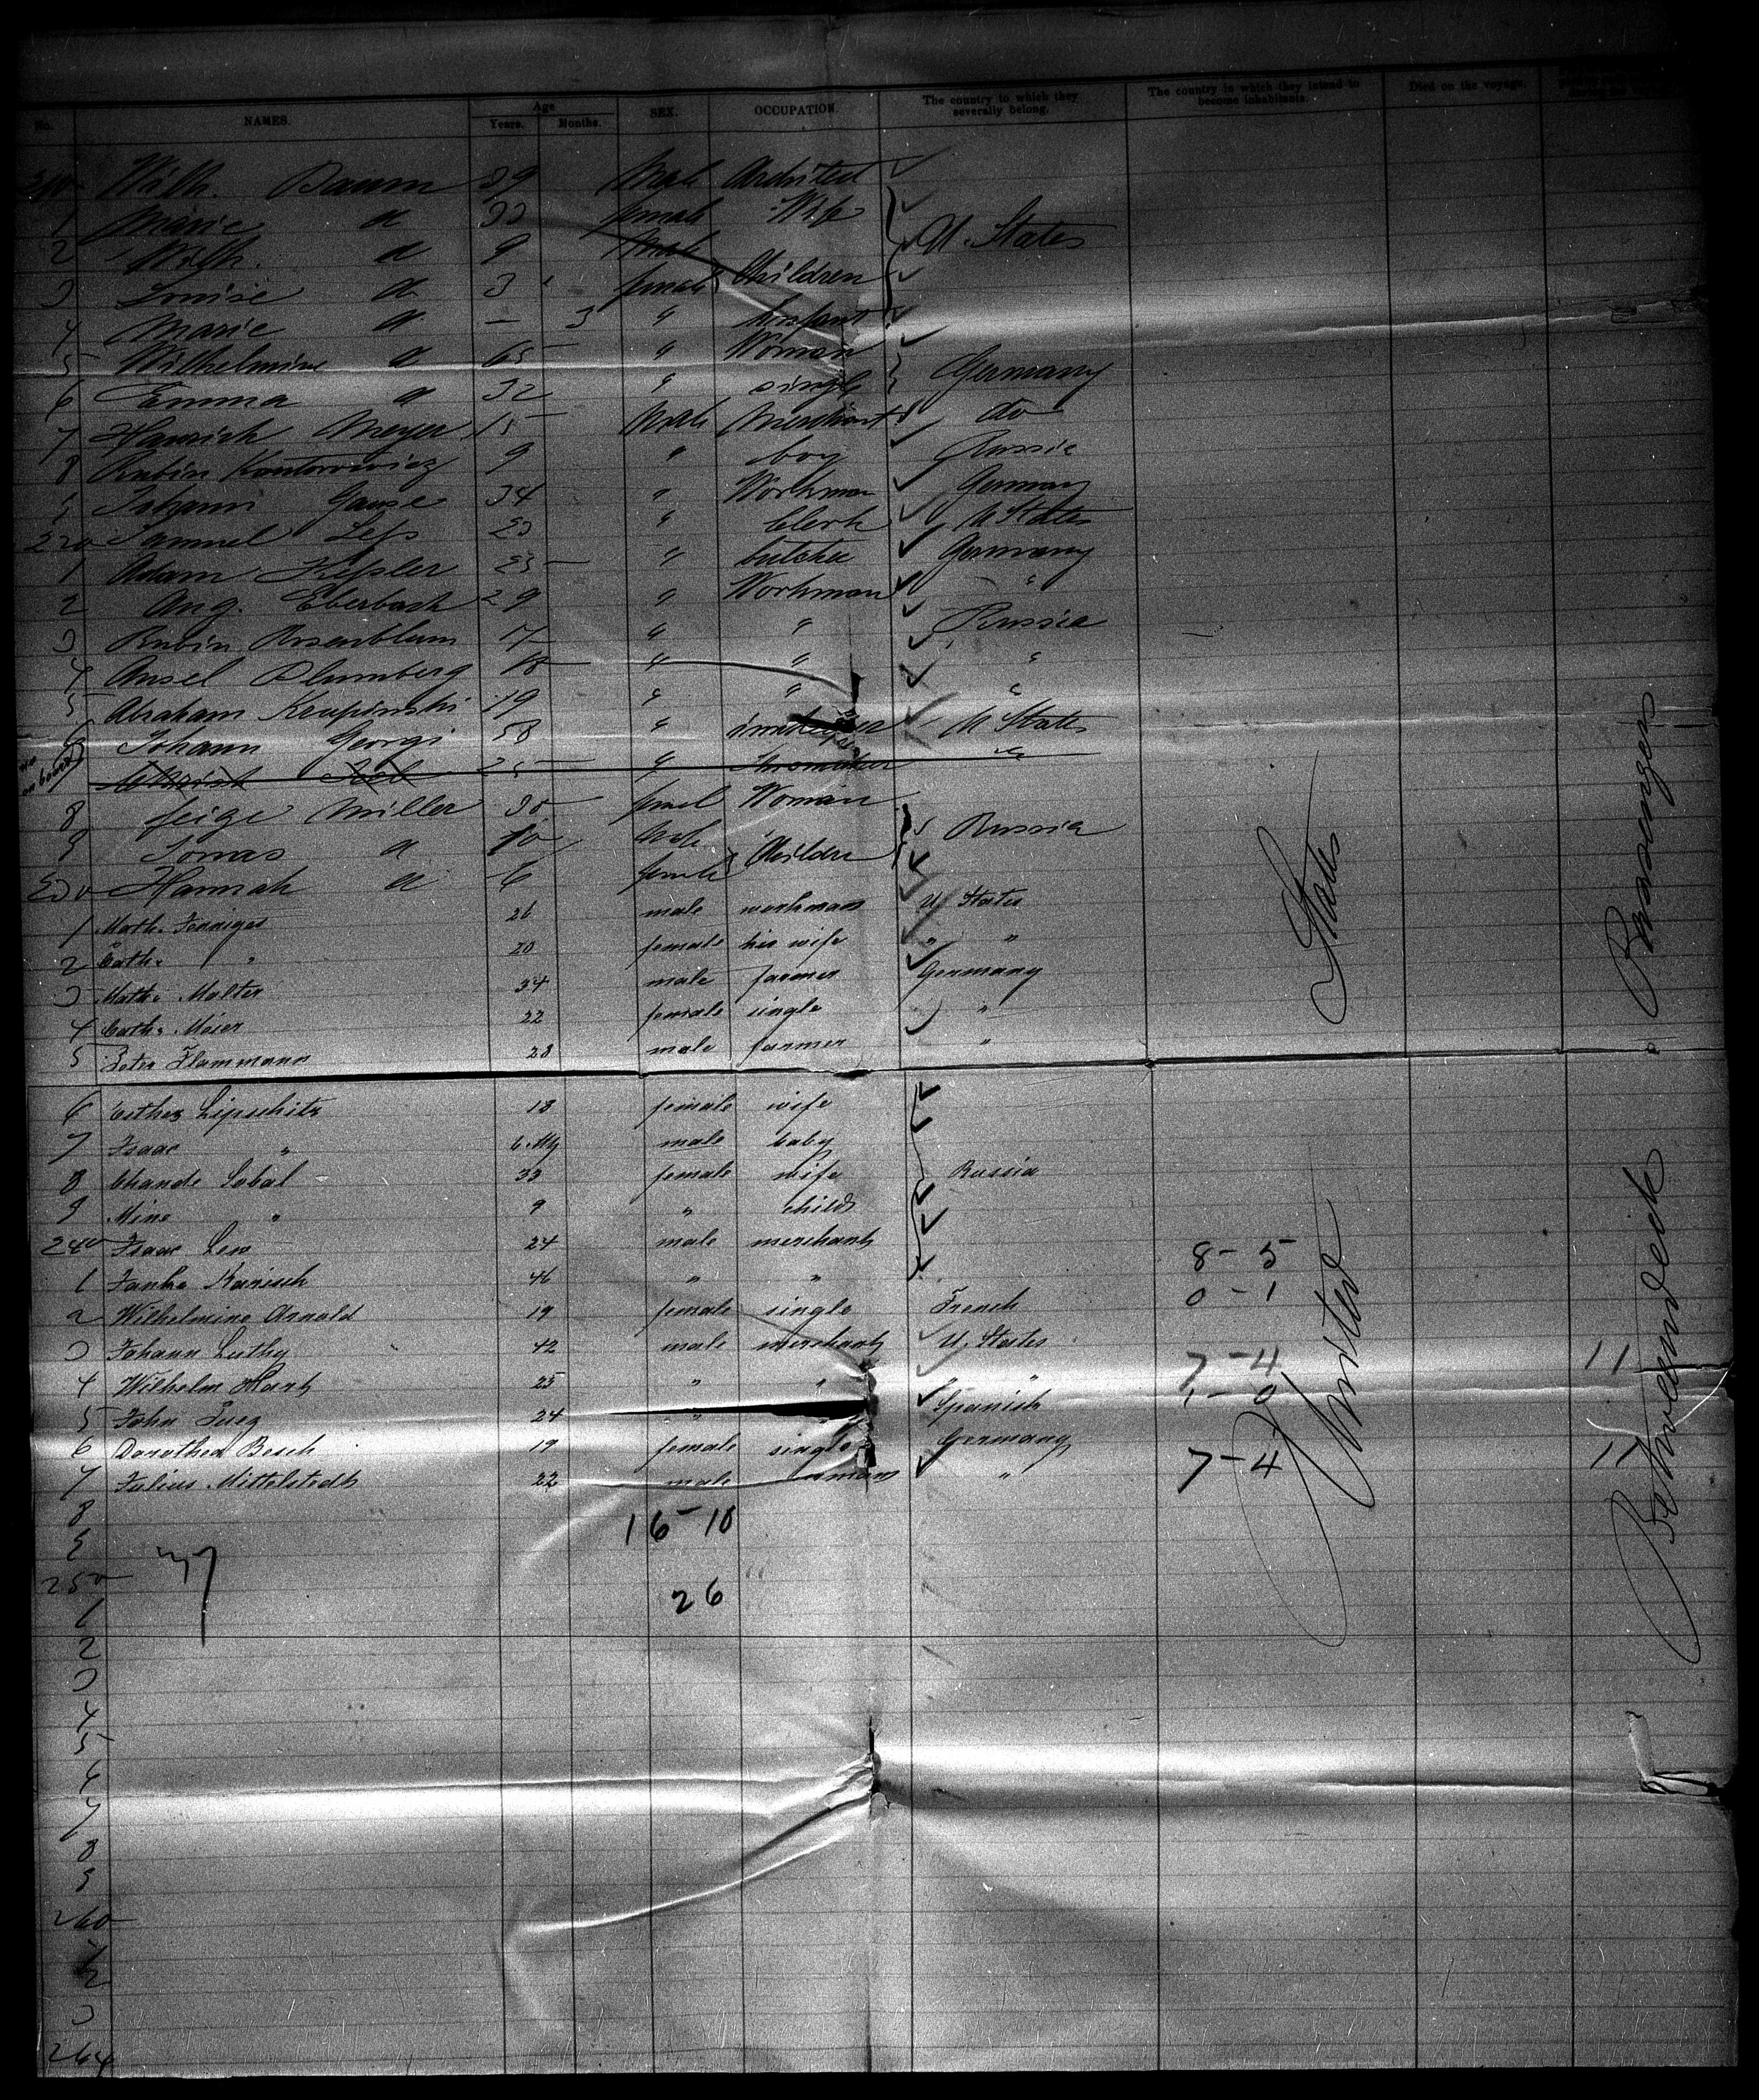 No. NAMES. Age Years. Months. SEX. OCCUPATION. The country to which they severally belong. The country in which they intend to become inhabitants. Died on the voyage.
Wilh. Baum 39 Male Architect
1 Marie d 33 female Wife
2 Wilh. d 9 Male U. States
3 Louise d 3 female Children
4 Marie d — 3 " Infant
5 Wilhelmine d 65 " Woman
6 Emma d 32 " single Germany
7 Heinrich Meyer 15 Male Merchant do
8 Rubin Kantorowicz 9 " boy Russia
Johann Gause 34 " Workman Germany
220 Samuel 23 " Clerk U States
1 Adam Kepler 23 " butcher Germany
2 Aug. Eberbach 29 " Workman "
3 Rubin Rosenblum 17 " " Russia
4 Ansel Blumberg 18 " " "
5 Abraham Krupinski 19 " " "
6 Johann Georgi 58 " U States
7 25 " Shoemaker "
8 Feige Miller 30 femel Woman
9 Jonas d 10 Male Children Russia
230 Hannah d 6 female
1 Math. Fenniges 26 male workman U. States
2 Cath. " 20 female his wife " "
3 Math. Malter 34 male farmer Germany
4 Cath. Meier 22 female single "
5 Peter Flammann 28 male farmer "
6 Esther Lipschitz 18 female wife
7 Isaac " 6 male baby
8 Chande Sobal 33 female wife Russia
9 Mine " 9 " child
240 Isaac Lew 24 male merchant
1 Janke Karisch 46 " "
2 Wilhelmine Arnold 19 female single French
3 Johann Luthy 42 male merchant U. States
4 Wilhelm Hart 25 " " " "
5 John Puig 24 " " Spanish
6 Dorothea Besch 19 female single Germany
7 Julius Mittelstedt 22 male "
8
9
250
1
2
3
4
5
6
7
8
9
260
2
3
264
37
16-10
26
8-5
0-1
7-4
1-0
7-4
11
11
United States
Betweendeck Passengers